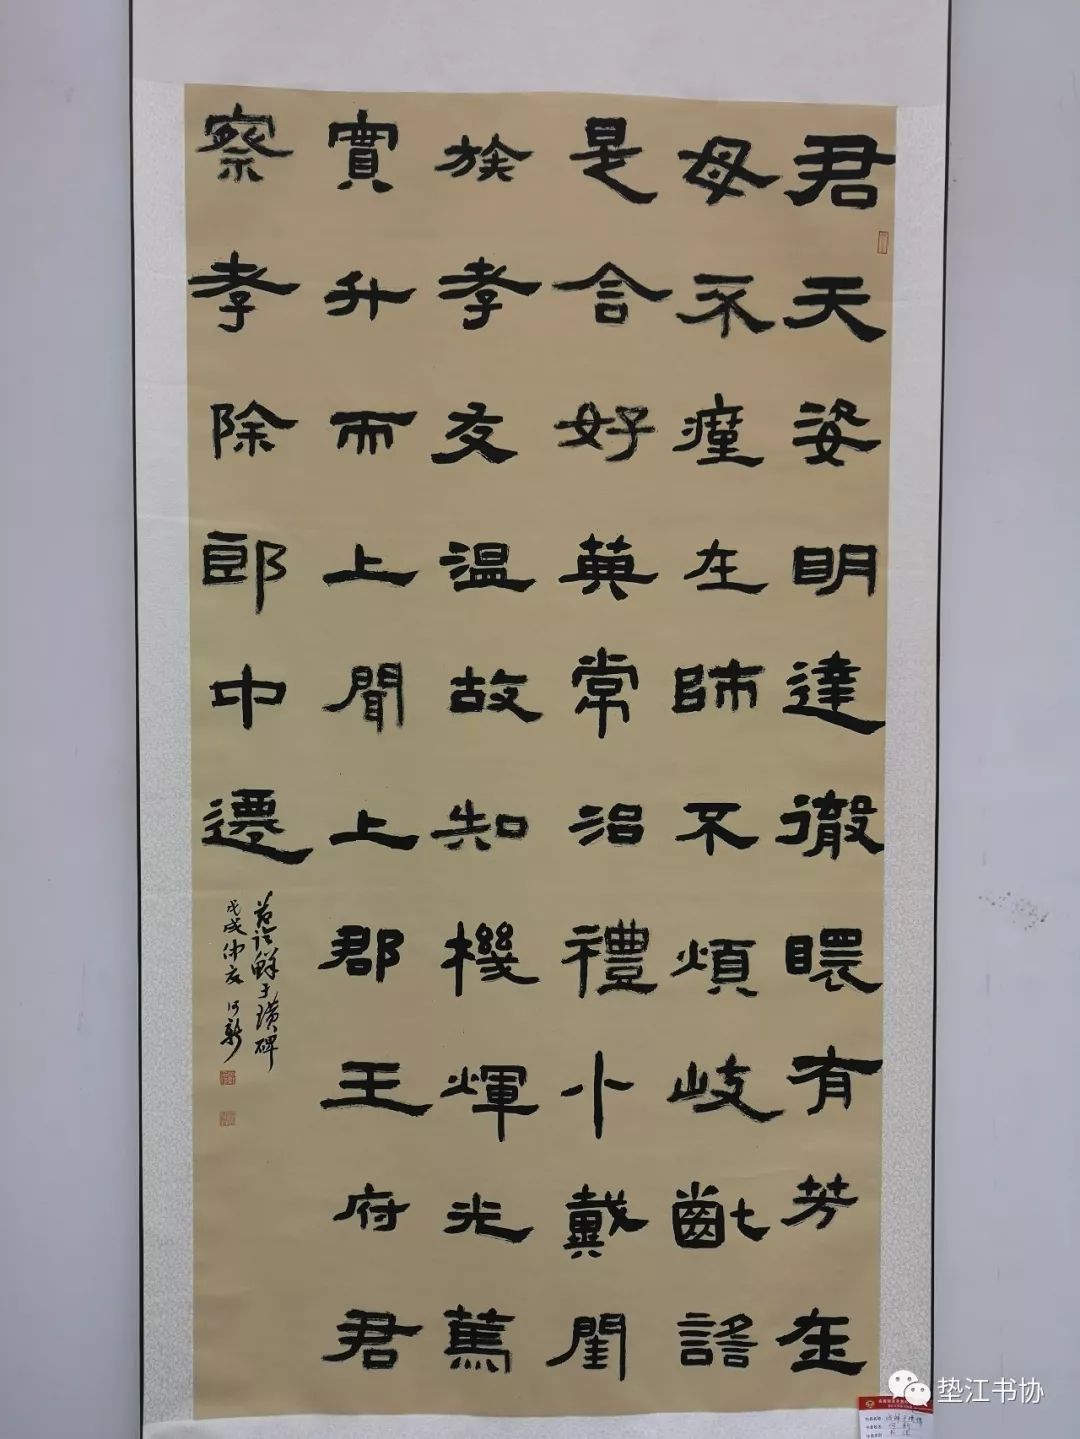 君天姿明達徹有芳在
母不瘽在師不煩岐齔謠
是含好英常治禮小戴閨
族孝友溫故知機輝光篤
實升而上聞上郡王府君
察孝除郎中遷
节临鲜于璜碑
戊戌仲夏何新
垫江书协